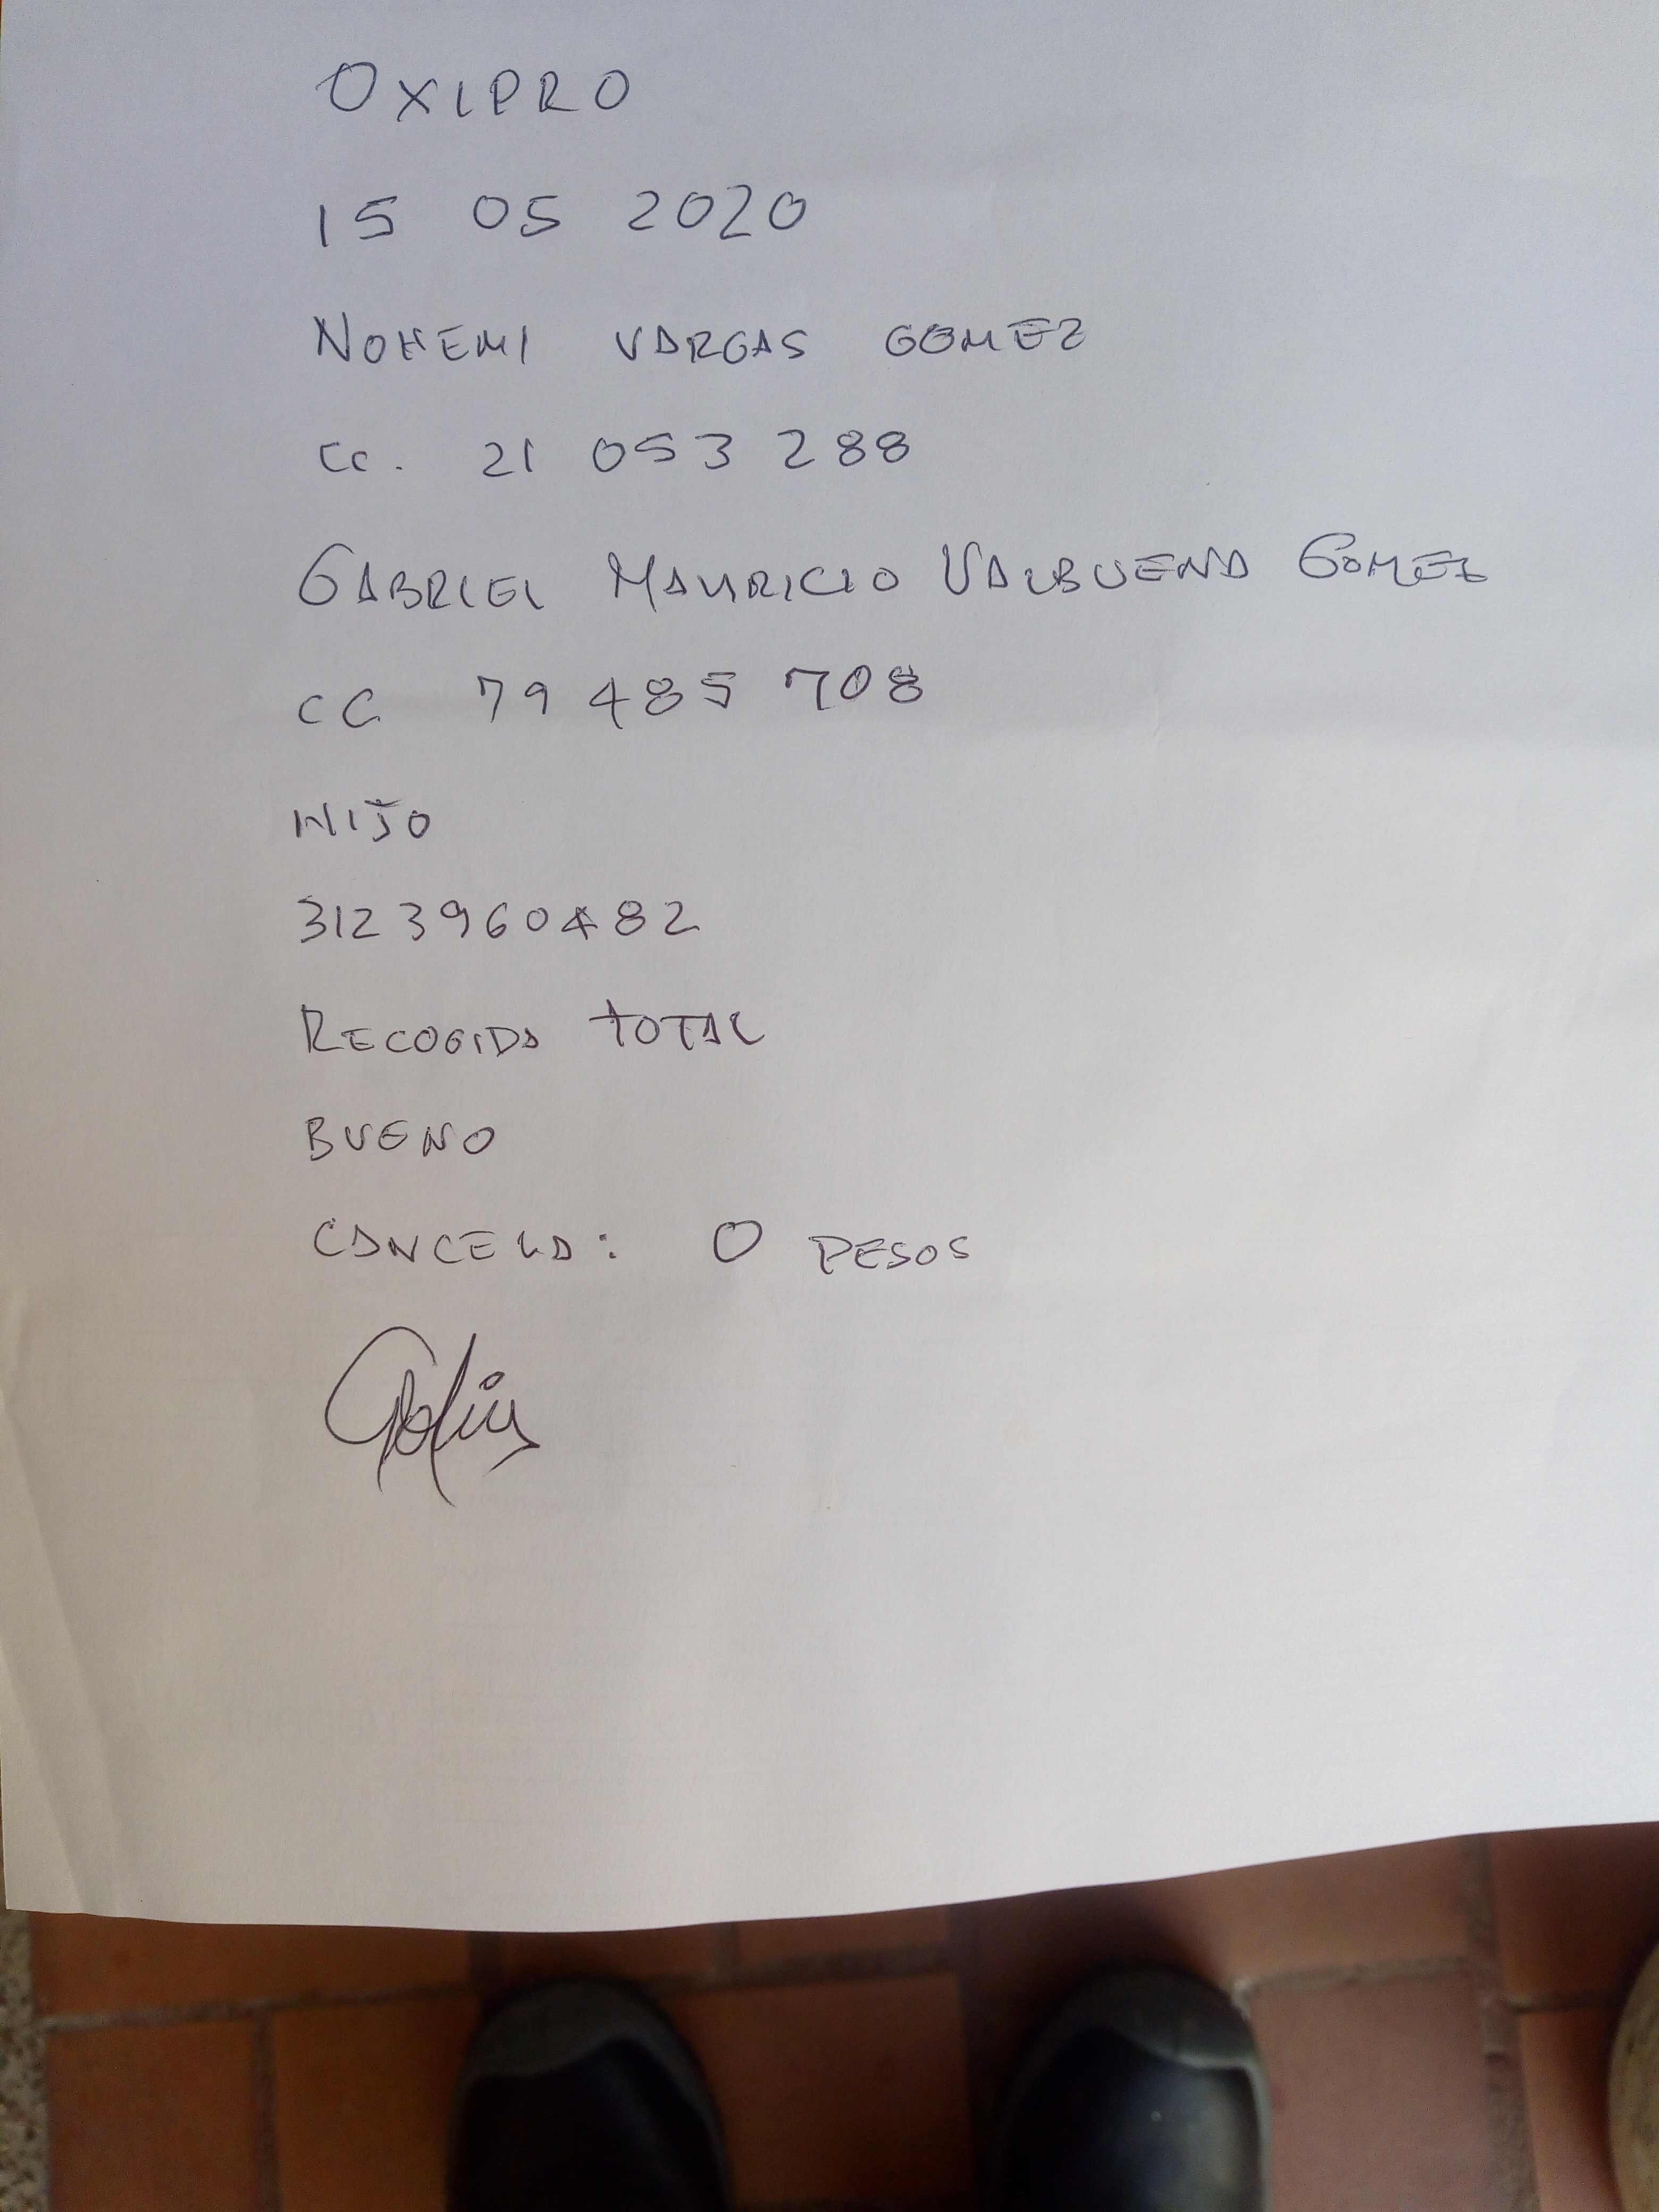 OXIPRO
15 05 2020
NOHEMI VARGAS GOMEZ
CC. 21 053 288
GABRIEL MAURICIO VALBUENA GOMEZ
CC 79 485 708
HIJO
3123960482
RECOGIDA TOTAL
BUENO
CANCELA: 0 PESOS